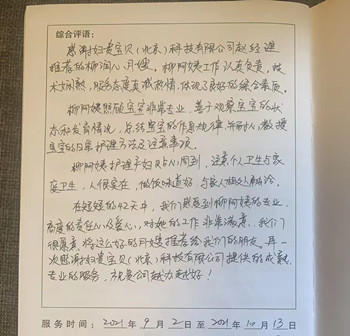 综合评语:
感谢妇美宝贝(北京)科技有限公司赵经理
推荐的柳润心月嫂。柳阿姨工作认真负责,技
术娴熟,服务态度真诚热情,体现了良好的综合素质。
柳阿姨照顾宝宝非常专业,善于观察宝宝的状
态和发育情况,总结宝宝的作息规律,并耐心教授
宝宝的日常护理方法及注意事项。
柳阿姨护理产妇
周到,注意个人卫生与家
庭卫生,人很实在,做饭味道好,与家人相处融洽。
在短短的42天中,我们感受到柳阿姨的专业、
高度的责任心及爱心,对她的工作非常满意,我们
很愿意将这么好的月嫂推荐给我们的朋友。再一
次感谢妇美宝贝(北京)科技有限公司提供的成熟、
专业的服务,祝贵公司越办越好!
服务时间:2021年9月2日至2021年10月13日